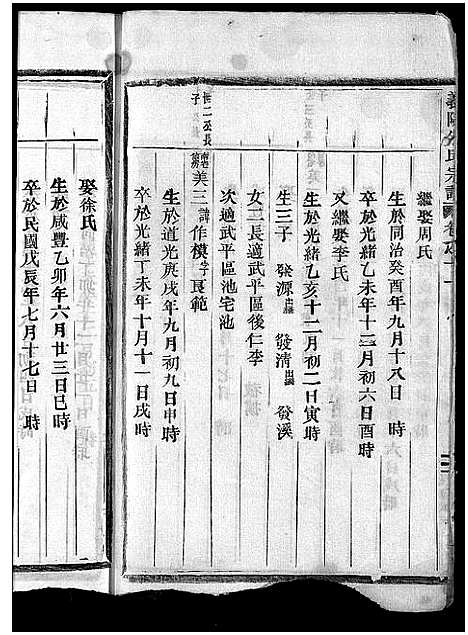 繼娶周氏
生於同治癸酉年九月十八日　時
卒於光緒乙未年十二月初六日酉時
又繼娶李氏
生於光緒乙亥十二月初二日寅時
生三子　發源出繼　發清出繼　發溪
女二長適武平區後仁李
次適武平區池宅池
世二丞長子
美三諱作模字良範
生於道光庚戌年九月初九日申時
卒於光緒丁未年十月十一日戌時
娶徐氏
生於咸豐乙卯年六月廿三日巳時
卒於民國戊辰年七月十七日　時